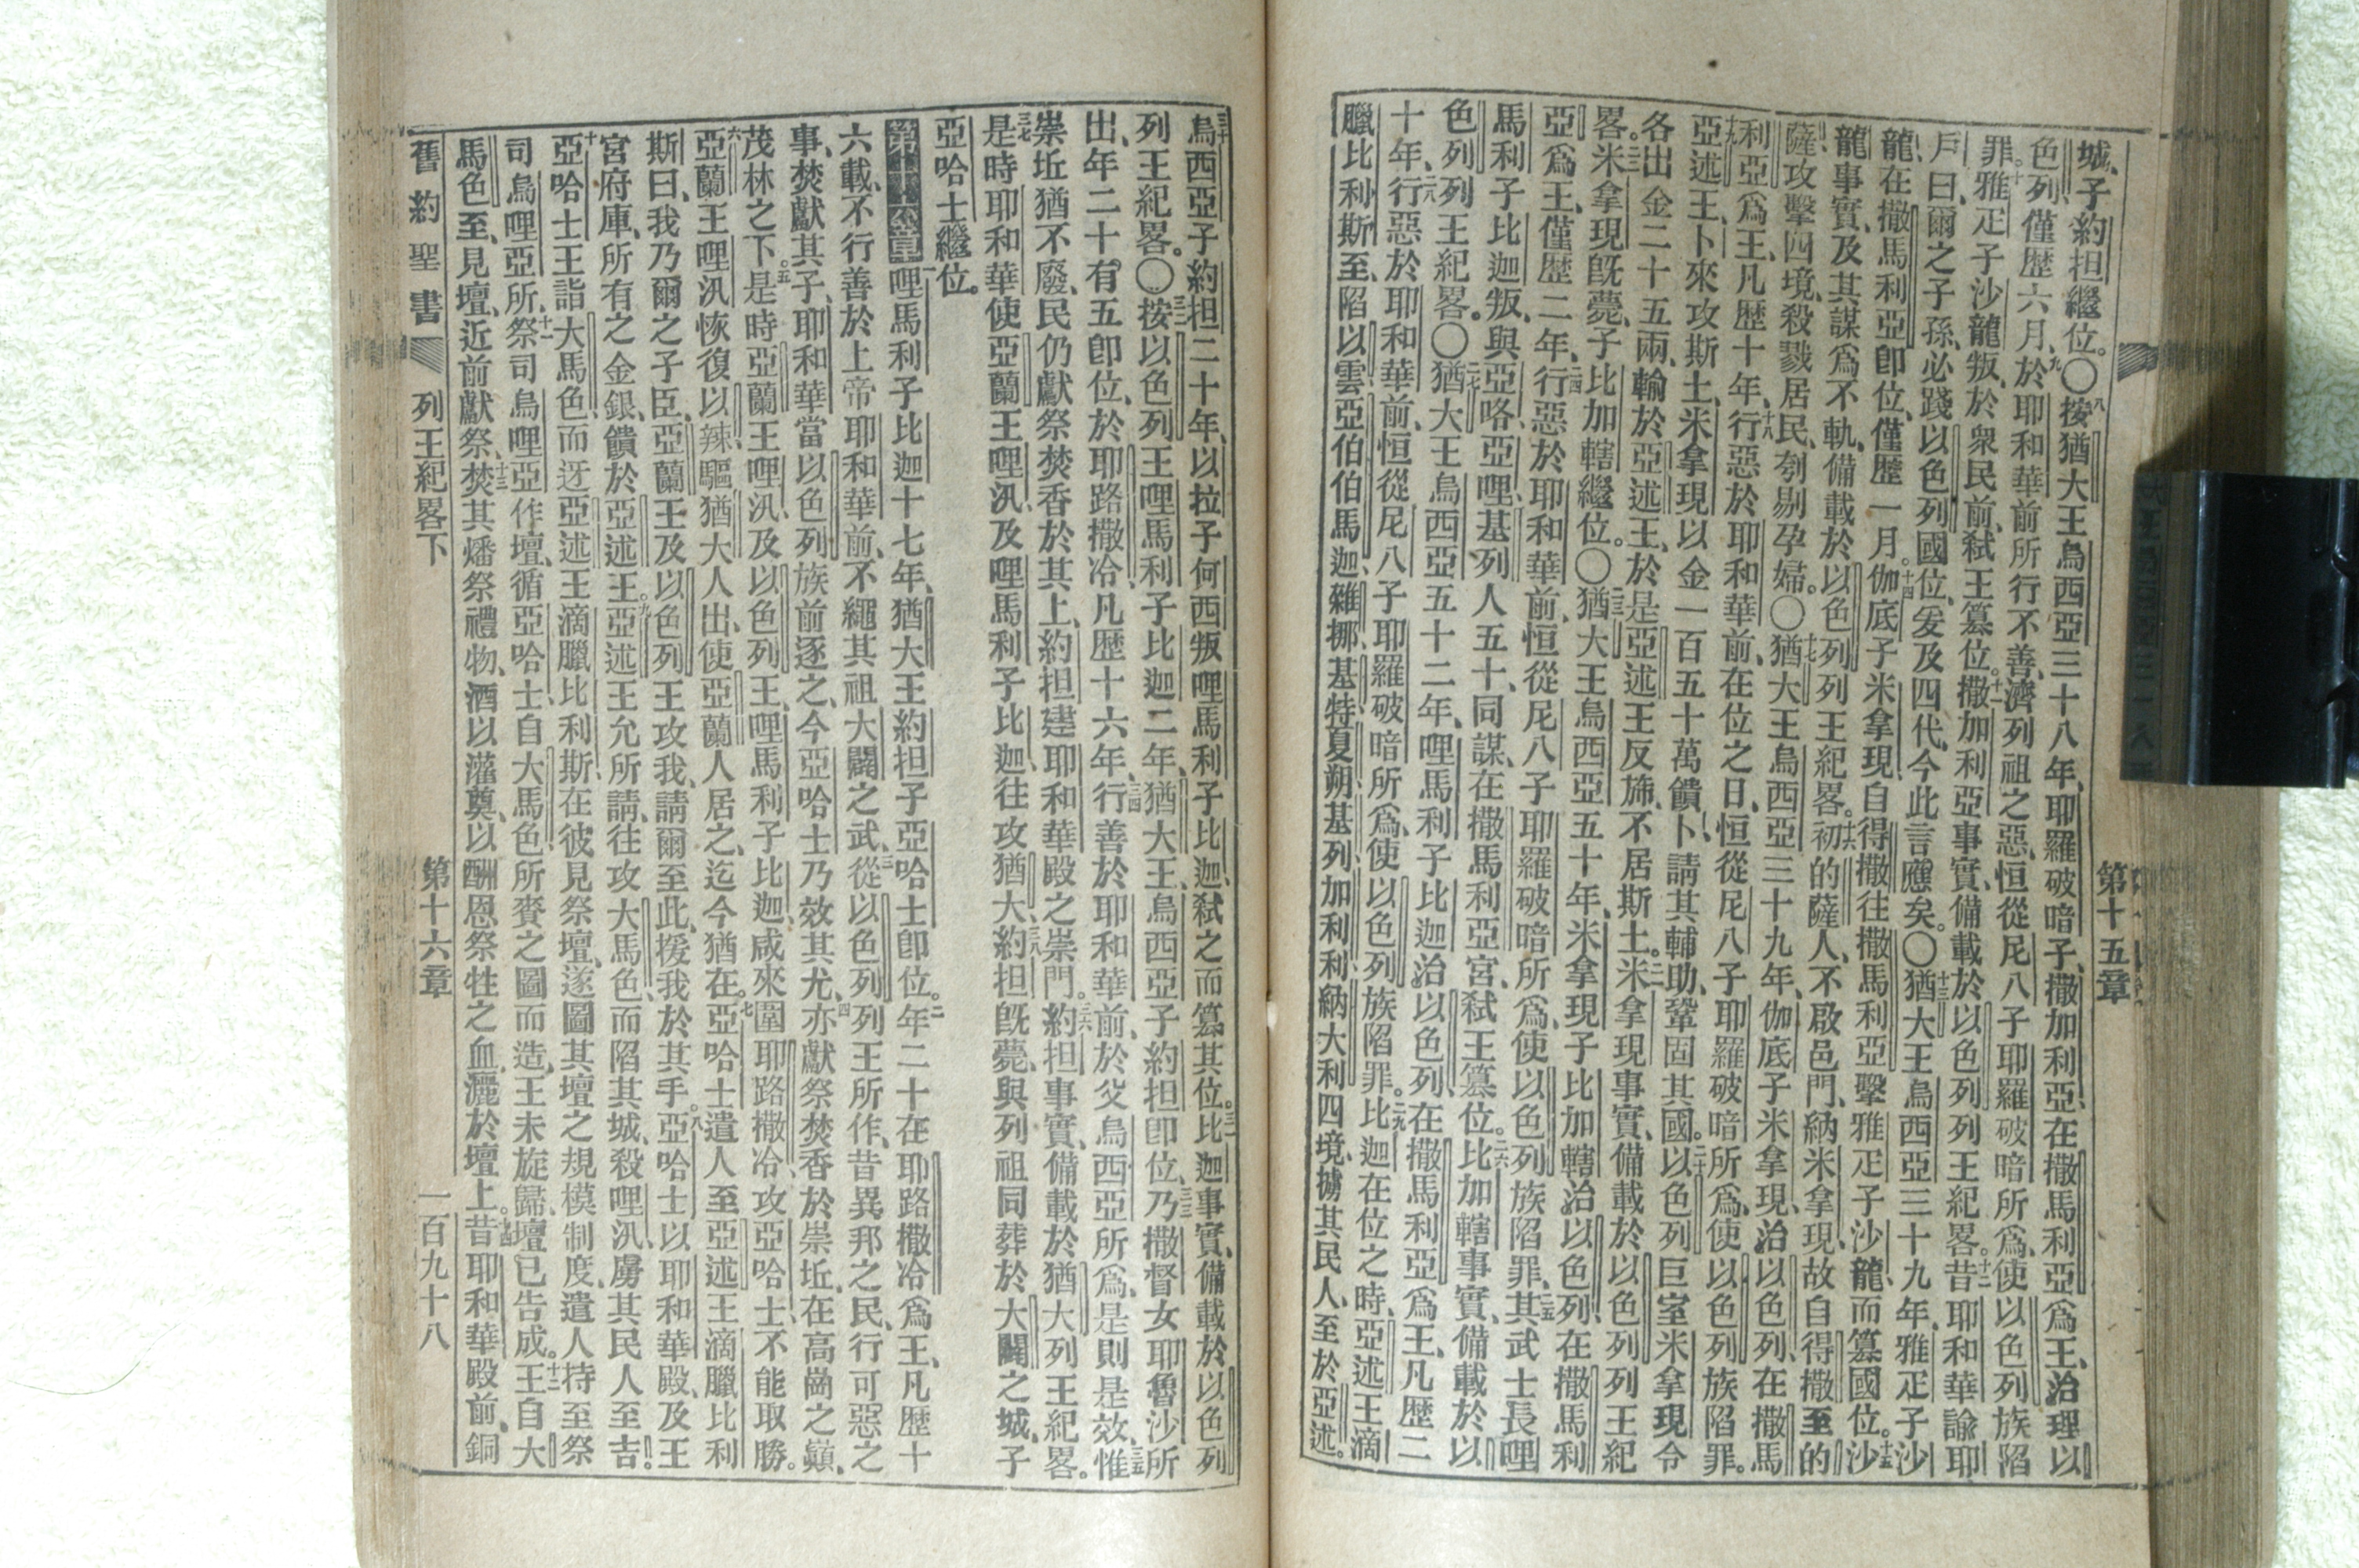 第十五章
城、子約担繼位。〇八按猶大王烏西亞三十八年、耶羅破暗子、撒加利亞、在撒馬利亞爲王、治理以
色列、僅歷六月、九於耶和華前所行不善、濟列祖之惡、恒從尼八子耶羅破暗所爲、使以色列族陷
罪。十雅疋子沙龍叛、於衆民前、弒王簒位。十一撒加利亞事實、備載於以色列列王紀畧。十二昔耶和華諭耶
戶曰、爾之子孫、必踐以色列國位、爰及四代、今此言應矣。〇十三猶大王烏西亞三十九年、雅疋子沙
龍、在撒馬利亞卽位、僅歷一月。十四伽底子米拿現、自得撒往撒馬利亞、擊雅疋子沙龍、而簒國位。十五沙
龍事實、及其謀爲不軌、備載於以色列列王紀畧。十六初的薩人、不啟邑門、納米拿現、故自得撒至的
薩、攻擊四境、殺戮居民、刳剔孕婦。〇十七猶大王烏西亞三十九年、伽底子米拿現、治以色列、在撒馬
利亞爲王、凡歷十年、十八行惡於耶和華前、在位之日、恒從尼八子耶羅破暗所爲、使以色列族陷罪。
十九亞述王、卜來攻斯土、米拿現以金一百五十萬饋卜、請其輔助、鞏固其國。二十以色列巨室、米拿現令
各出金二十五兩、輸於亞述王、於是亞述王反斾、不居斯土。二一米拿現事實、備載於以色列列王紀
畧。二二米拿現旣薨、子比加轄繼位。〇二三猶大王烏西亞五十年、米拿現子比加轄、治以色列、在撒馬利
亞爲王、僅歷二年、二四行惡於耶和華前、恒從尼八子耶羅破暗所爲、使以色列族陷罪、二五其武士長哩
馬利子比迦叛、與亞咯、亞哩、基列人五十、同謀、在撒馬利亞宮、弒王簒位。二六比加轄事實、備載於以
色列列王紀畧。〇二七猶大王烏西亞五十二年、哩馬利子比迦、治以色列、在撒馬利亞爲王、凡歷二
十年、二八行惡於耶和華前、恒從尼八子耶羅破暗所爲、使以色列族陷罪。二九比迦在位之時、亞述王滴
臘比利斯至、陷以雲、亞伯伯馬迦、雜挪、基特夏朔、基列、加利利、納大利四境、擄其民人、至於亞述。
三十烏西亞子約担二十年、以拉子何西叛哩馬利子比迦、弒之而簒其位。三一比迦事實、備載於以色列
列王紀畧。〇三二按以色列王哩馬利子比迦二年、猶大王、烏西亞子約担卽位、三三乃撒督女耶魯沙所
出、年二十有五卽位、於耶路撒冷、凡歷十六年、三四行善於耶和華前、於父烏西亞所爲、是則是效、三五惟
崇坵猶不廢、民仍獻祭焚香於其上、約担建耶和華殿之崇門。三六約担事實、備載於猶大列王紀畧。
三七是時耶和華使亞蘭王哩汎、及哩馬利子比迦、往攻猶大、三八約担旣薨、與列祖同葬於大闢之城、子
亞哈士繼位。
第十六章 一哩馬利子比迦十七年、猶大王約担子亞哈士卽位。二年二十在耶路撒冷爲王、凡歷十
六載、不行善於上帝耶和華前、不繩其祖大闢之武、三從以色列列王所作、昔異邦之民、行可惡之
事、焚獻其子、耶和華當以色列族前逐之、今亞哈士乃效其尤、四亦獻祭焚香於崇坵、在高崗之巔、
茂林之下。五是時亞蘭王哩汎、及以色列王、哩馬利子比迦、咸來圍耶路撒冷、攻亞哈士、不能取勝。
六亞蘭王哩汎恢復以辣、驅猶大人出、使亞蘭人居之、迄今猶在。七亞哈士遣人至亞述王滴臘比利
斯曰、我乃爾之子臣、亞蘭王及以色列王攻我、請爾至此、援我於其手。八亞哈士以耶和華殿、及王
宮府庫、所有之金銀、饋於亞述王。九亞述王允所請、往攻大馬色、而陷其城、殺哩汎、虜其民人至吉。
十亞哈士王詣大馬色而迓亞述王滴臘比利斯、在彼見祭壇、遂圖其壇之規模制度、遣人持至祭
司烏哩亞所、十一祭司烏哩亞作壇、循亞哈士自大馬色所賚之圖而造、王未旋歸、壇已告成。十二王自大
馬色至、見壇、近前獻祭、十三焚其燔祭禮物、酒以灌奠、以酬恩祭牲之血、灑於壇上。十四昔耶和華殿前、銅
舊約聖書 列王紀畧下 第十六章 一百九十八